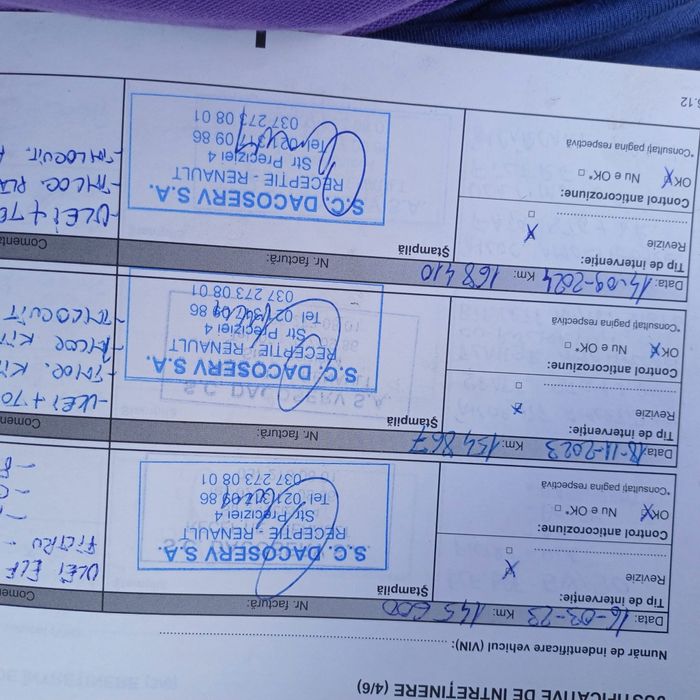 JUSTIFICATIVE DE ÎNTREȚINERE (4/6)
Număr de indentificare vehicul (VIN):
Data: 16-03-23 Km: 145 600 Nr. factură: Comen
Tip de intervenție:
Revizie X
Ștampilă
Control anticoroziune:
OK X Nu e OK*
*Consultați pagina respectivă
S.C. DACOSERV S.A
RECEPTIE - RENAULT
Str Preciziei 4
Tel 021/317 09 86
037 273 08 01
ULEI ELF
FILTRU -
Data: 18-11-2023 Km: 154 867 Nr. factură: Comen
Tip de intervenție:
Revizie X
Ștampilă
Control anticoroziune:
OK X Nu e OK*
*Consultați pagina respectivă
S.C. DACOSERV S.A.
RECEPTIE - RENAULT
Str Preciziei 4
Tel 021/317 09 86
037 273 08 01
- ULEI + 70
- KIT
- KIT
Data: 14-09-2024 Km: 168 410 Nr. factură: Comenta
Tip de intervenție:
Revizie X
Ștampilă
Control anticoroziune:
OK X Nu e OK*
*Consultați pagina respectivă
S.C. DACOSERV S.A.
RECEPTIE - RENAULT
Str Preciziei 4
Tel 021/317 09 86
037 273 08 01
- ULEI + 70
5.12